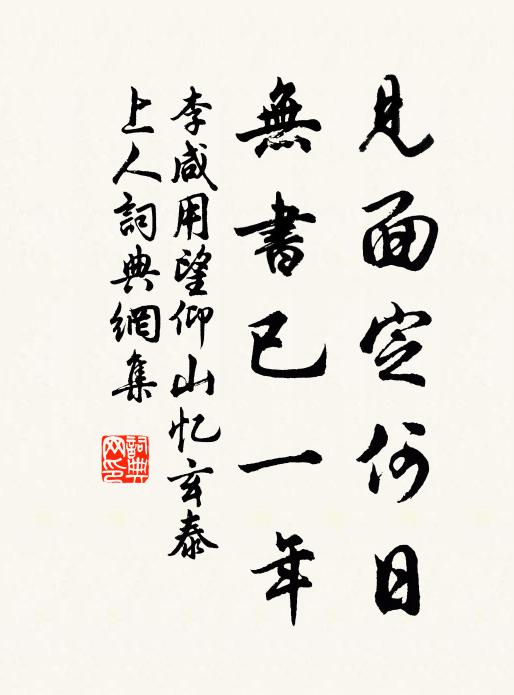 見面定何日
無書已一年
李咸用望仰山忆玄泰
上人詞典網集
詞典网印